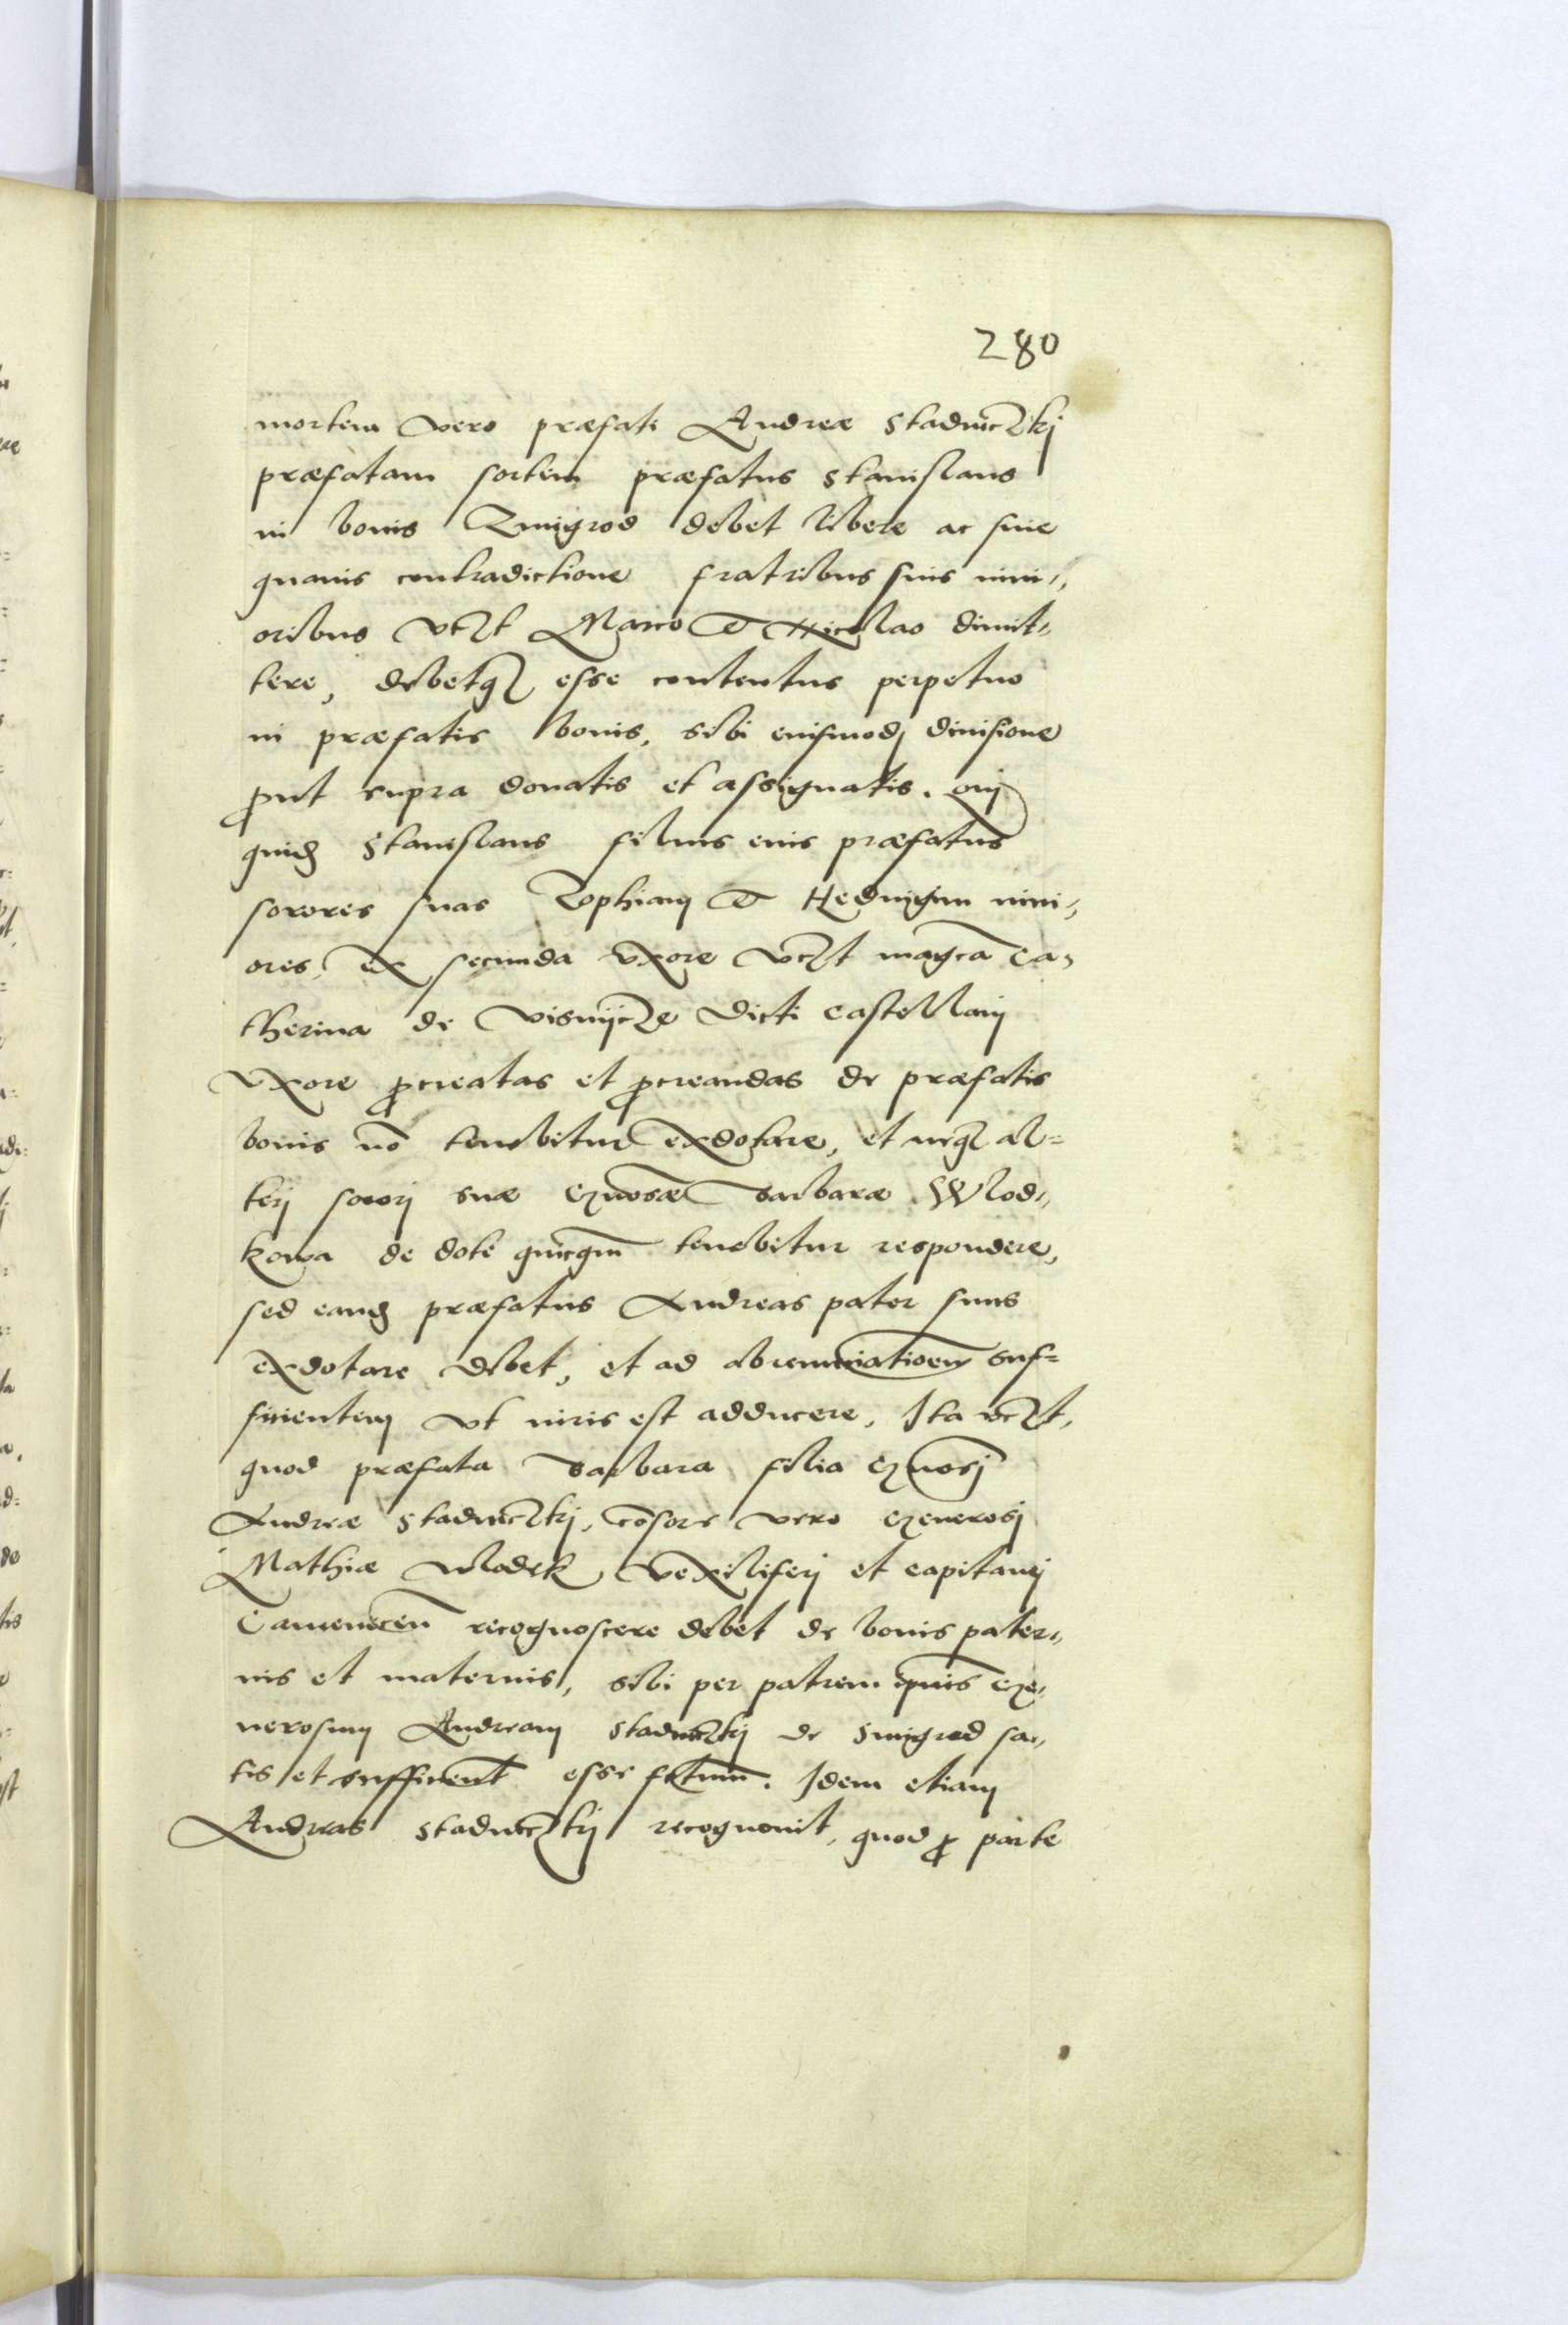 280
mortem vero præfati Andreæ Stadniczkj
præfatam sortem præfatus Stanislaus
in bonis Zmigrod debet libere ac sine
quauis contradictione fratribus suis mini„
oribus vczt Marco & Nicolao dimit„
tere, debetqȝ esse contentus perpetuo
in præfatis bonis, sibi euismodj diuisione
ꝓut supra donatis et assignatis. Qui
quidē Stanislaus filius eius præfatus
sorores suas Zophiam & Heduigim mini„
ores, ex secunda vxore vczt magcā Ca„
therina de Visniicze dicti Castellani
vxore ꝓcreatas et ꝓcreandas de præfatis
bonis nō tenebitur exdotare, et neqȝ al=
terj sorori suæ Gñosæ Barbaræ Wlod„
kowa de dote quicqm̄ tenebitur respondere,
sed eandē præfatus Andreas pater suus
exdotare debet, et ad abrenunciatioēm suf=
ficientem vt iuris est adducere, Ita vczt,
quod præfata Barbara filia Gñosj
Andreæ Stadniczkj, cōsors vero Generosj
Mathiæ Wlodek Vexiliferj et capitanej
Camenecen̄ recognoscere debet de bonis pater„
nis et maternis, sibi per patrem ipsius Ge„
nerosum Andream Stadniczkij de Smigrod sa„
tis et sufficient̄ esse fctum̄. Idem etiam
Andreas Stadniczkij recognouit, quod ꝓ parte